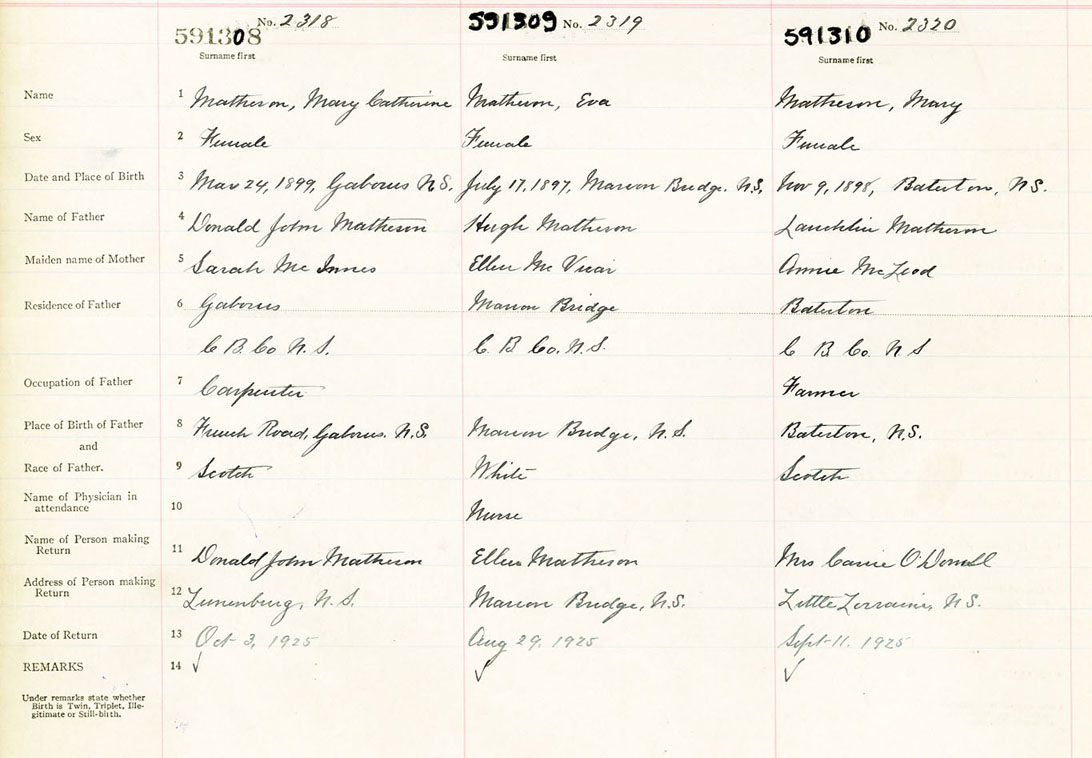 591308 No. 2318 591309 No. 2319 591310 No. 2320
Surname first Surname first Surname first
Name 1 Matheson, Mary Catherine Matheson, Eva Matheson, Mary
Sex 2 Female Female Female
Date and Place of Birth 3 Mar 24, 1899, Gabarus N.S. July 17, 1897, Marion Bridge. N.S. Nov 9, 1898, Bateston, N.S.
Name of Father 4 Donald John Matheson Hugh Matheson Lauchlin Matheson
Maiden name of Mother 5 Sarah Mc Innes Ellen Mc Vicar Annie McLeod
Residence of Father 6 Gabarus Marion Bridge Bateston
C. B. Co N. S. C. B Co. N.S. C B Co. N S
Occupation of Father 7 Carpenter Farmer
Place of Birth of Father 8 French Road, Gabarus. N.S. Marion Bridge, N.S. Bateston, N.S.
and
Race of Father. 9 Scotch White Scotch
Name of Physician in
attendance 10 Nurse
Name of Person making
Return 11 Donald John Matheson Ellen Matheson Mrs Carrie O'Donnell
Address of Person making
Return 12 Lunenburg, N.S. Marion Bridge, N.S. Little Lorraine, N.S.
Date of Return 13 Oct 3, 1925 Aug 29, 1925 Sept 11. 1925
REMARKS 14 ✓ ✓ ✓
Under remarks state whether
Birth is Twin, Triplet, Ille-
gitimate or Still-birth.